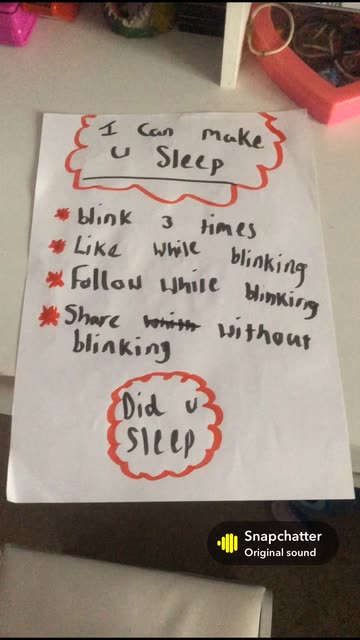 I can make
u Sleep
blink 3 times
Like while blinking
Follow while blinking
Share without
blinking
Did u
Sleep
Snapchatter
Original sound